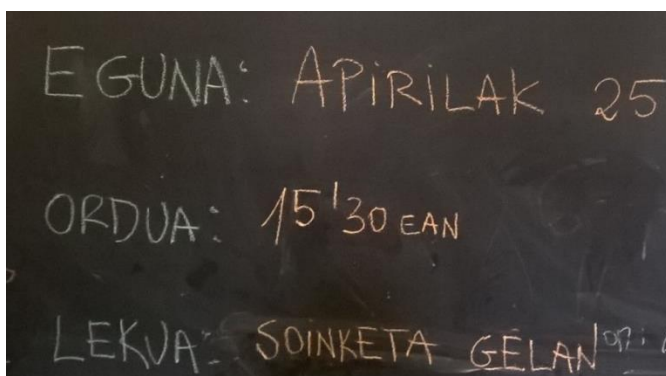 EGUNA: APIRILAK 25
ORDUA: 15'30 EAN
LEKUA: SOINKETA GELAN